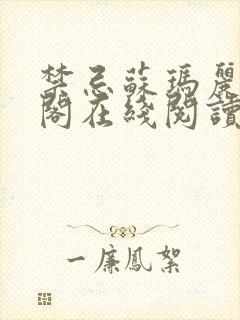 禁忌蘇瑪麗
閣在綫閱讀
一廉鳳絮